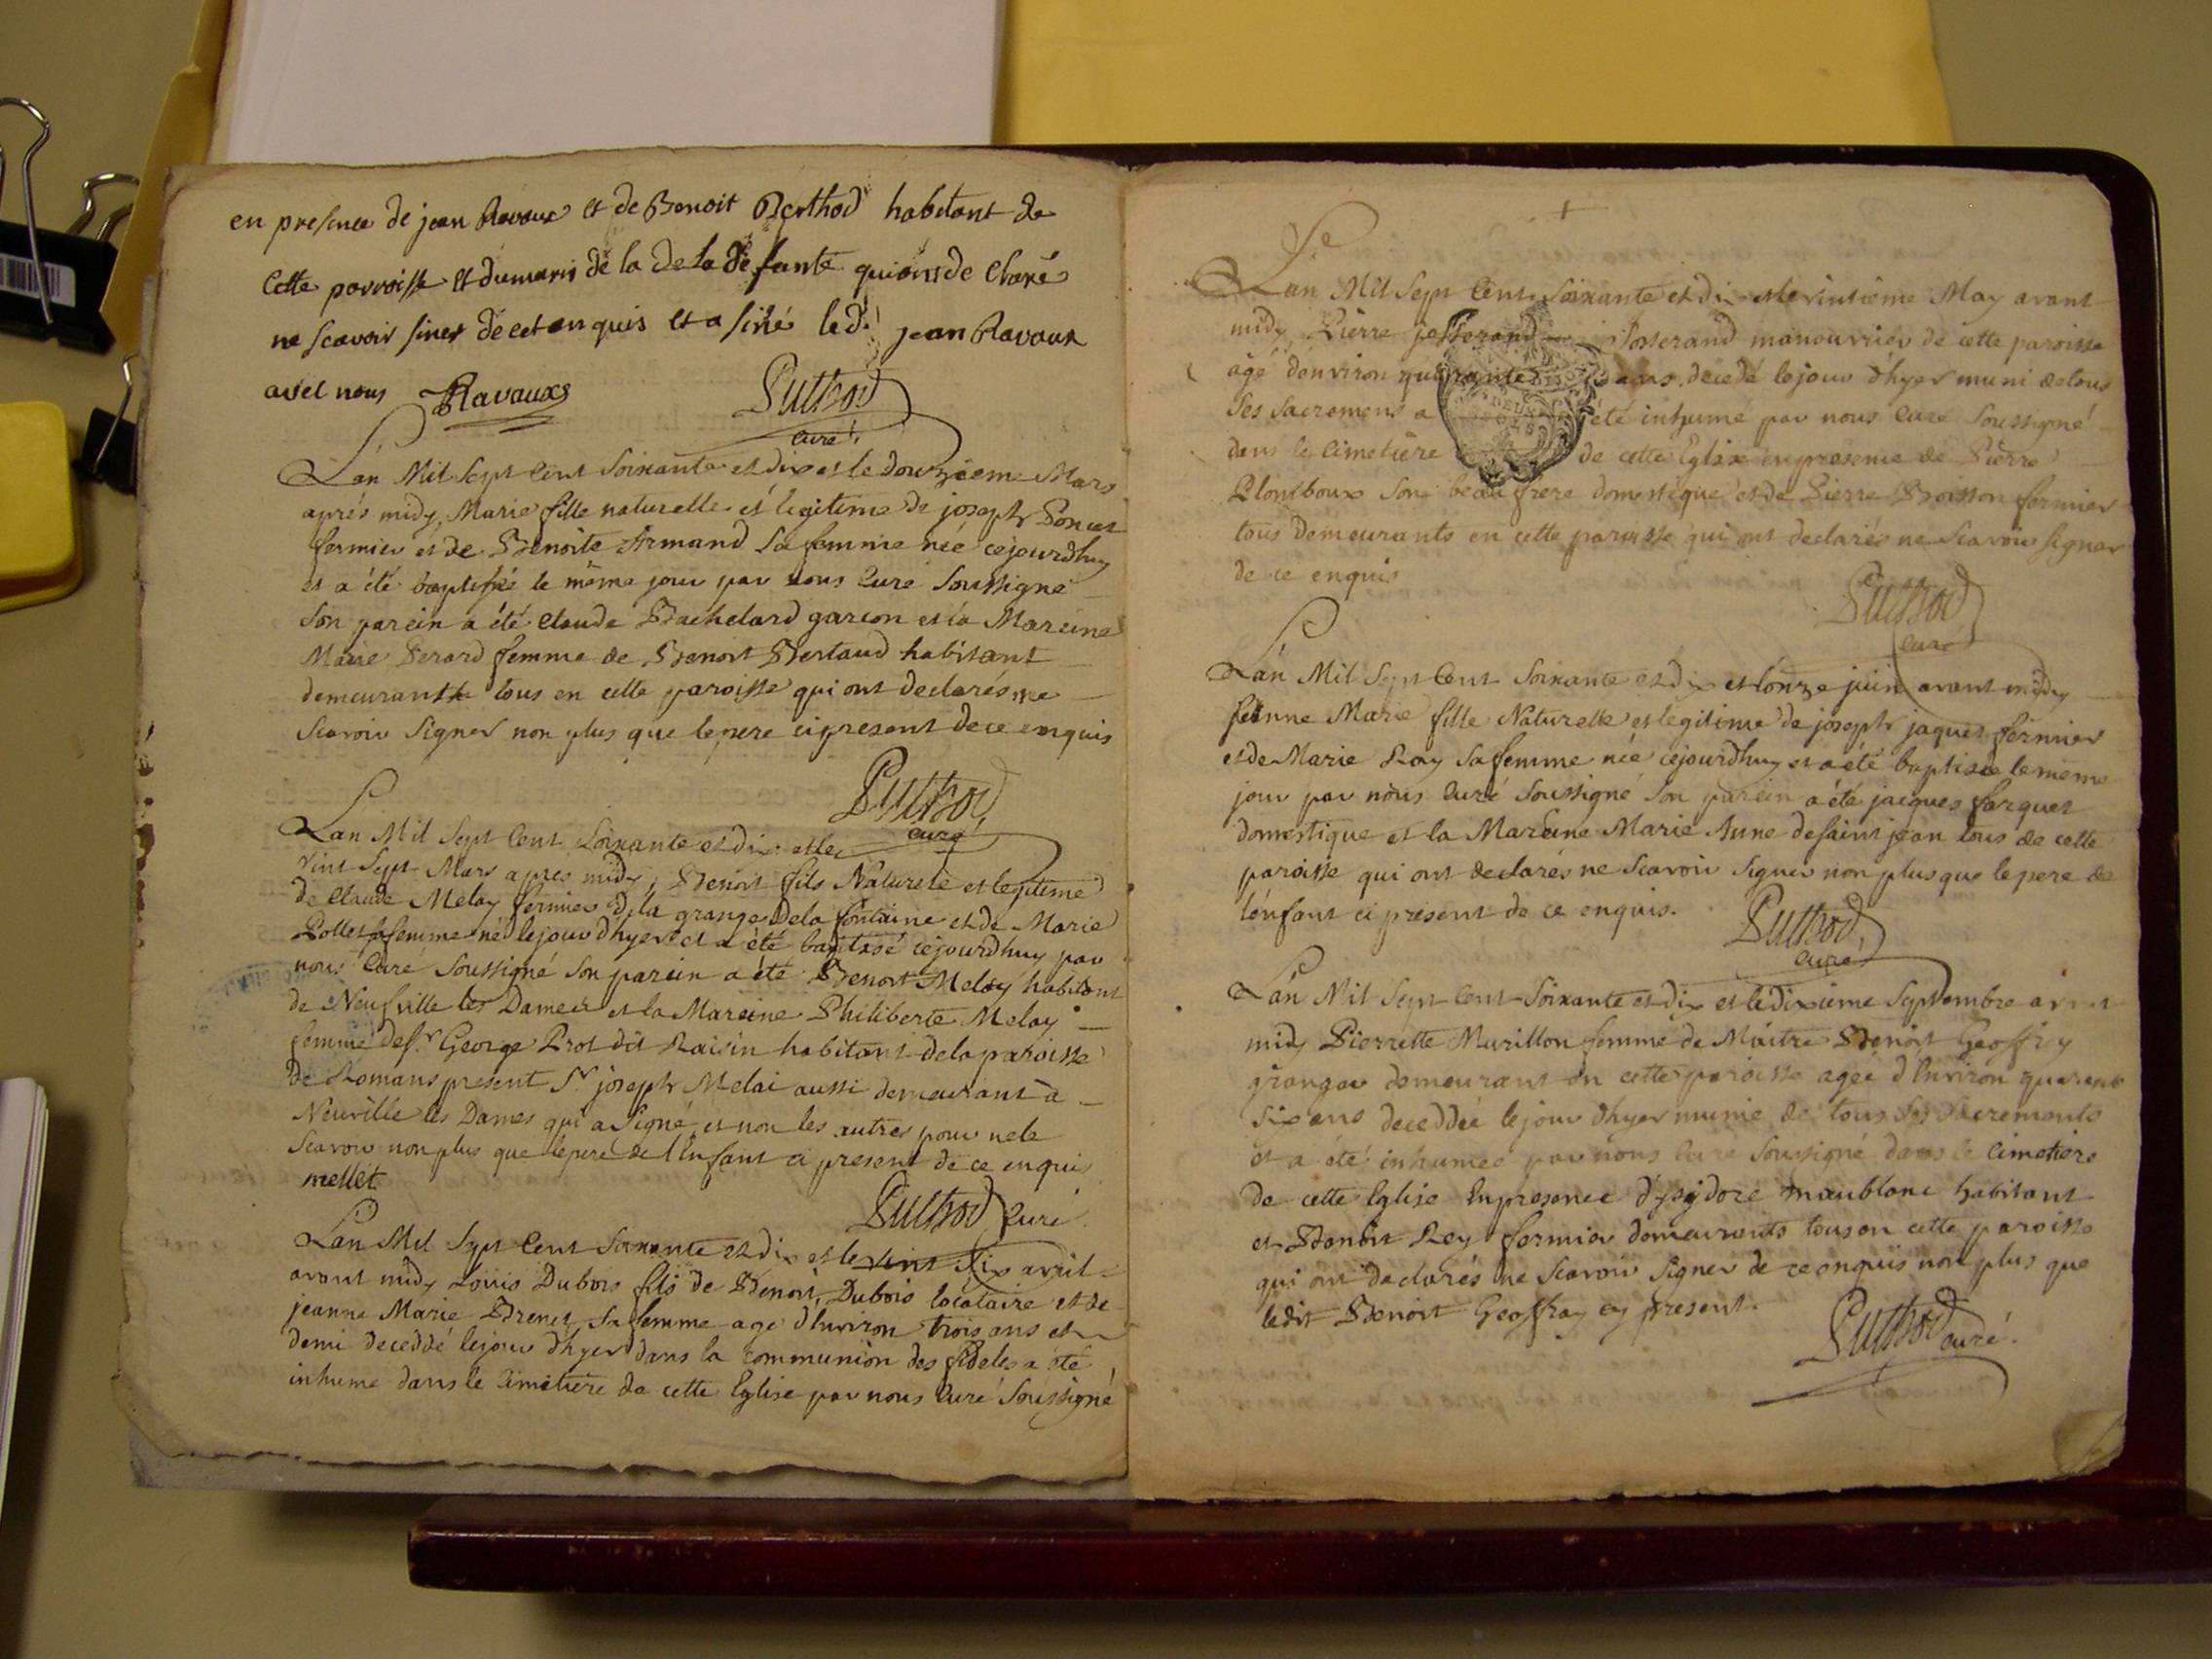 en presence de jean Ravaux et de Benoit Berthod habitant de
Cette parroisse et du maris de la de la defante qui ont de Claré
ne scavoir siner de cet enquis et a siné le d. jean Ravaux
avel nous Ravauxs Puthod
curé
L'an Mil Sept Cent Soixante et dix et le douzieme Mars
aprés midy, Marie fille naturelle et legitime de joseph Poncet
fermier et de Benoite Armand Sa femme née cejourdhuy
et a été baptisée le même jour par nous Curé Soussigné
Son parein a été Claude Bachelard garcon et la Mareine
Marie Perard femme de Benoit Bertaud habitant
demeurant tous en cette paroisse qui ont declarés ne
Scavoir Signer non plus que le pere ci present de ce enquis
Puthod
curé
Lan Mil Sept Cent Soixante et dix et le
vint Sept Mars apres midy, Benoit fils Naturele et legitime
de Claude Melay fermier de la grange de la fontaine et de Marie
Pollet sa femme né le jour d'hyer et a été baptisé cejourdhuy par
nous Curé Soussigné Son parein a été Benoit Melay habitant
de Neufville les Dames et la Mareine Philiberte Melay
femme de Sr George Prot dit Raisin habitant de la paroisse
de Romans present Sr joseph Melai aussi demeurant a
Neuville les Dames qui a Signé et non les autres pour ne le
Scavoir non plus que le pere de l'Enfant ci present de ce enquis
mellet Puthod Curé
Lan Mil Sept Cent Soixante et dix et le vint Six avril
avant midy Louis Dubois fils de Benoit Dubois locataire et de
jeanne Marie Brenet Sa femme age d'Environ trois ans et
demi deceddé le jour d'hyer dans la communion des fideles a été
inhumé dans le Cimetiere de cette Eglise par nous Curé Soussigné
L'an Mil Sept Cent Soixante et dix et le vintieme May avant
midy, Pierre josserand Josserand manouvrier de cette paroisse
agé d'environ quarante ans, decedé le jour d'hyer muni de tous
Ses Sacremens a été inhumé par nous Curé Soussigné
dans le Cimetiere de cette Eglise en presence de Pierre
Plontboux Son beau frere domestique et de Pierre Boisson fermier
tous demeurants en cette paroisse qui ont declarés ne Scavoir Signer
de ce enquis
Puthod
curé
L'an Mil Sept Cent Soixante et dix et l'onze juin avant midy
jeanne Marie fille Naturelle et legitime de joseph jaquet fermier
et de Marie Ray Sa femme née cejourdhuy et a été baptisée le même
jour par nous Curé Soussigné Son parein a été jacques farguet
domestique et la Mareine Marie Anne de Saint jean tous de cette
paroisse qui ont declarés ne Scavoir Signer non plus que le pere de
l'enfant ci present de ce enquis. Puthod
curé
L'an Mil Sept Cent Soixante et dix et le dixieme Septembre avant
midy Pierrette Murillon femme de Maitre Benoit Geoffrey
granger demeurant en cette paroisse agée d'Environ quarente
Six ans deceddée le jour d'hyer munie de tous Ses Sacrements
et a été inhumée par nous Curé Soussigné dans le Cimetiere
de cette Eglise En presence d'ysydore maublanc habitant
et Benoit Rey fermier demeurants tous en cette paroisse
qui ont declarés ne Scavoir Signer de ce enquis non plus que
ledit Benoit Geoffray cy present.
Puthod curé.